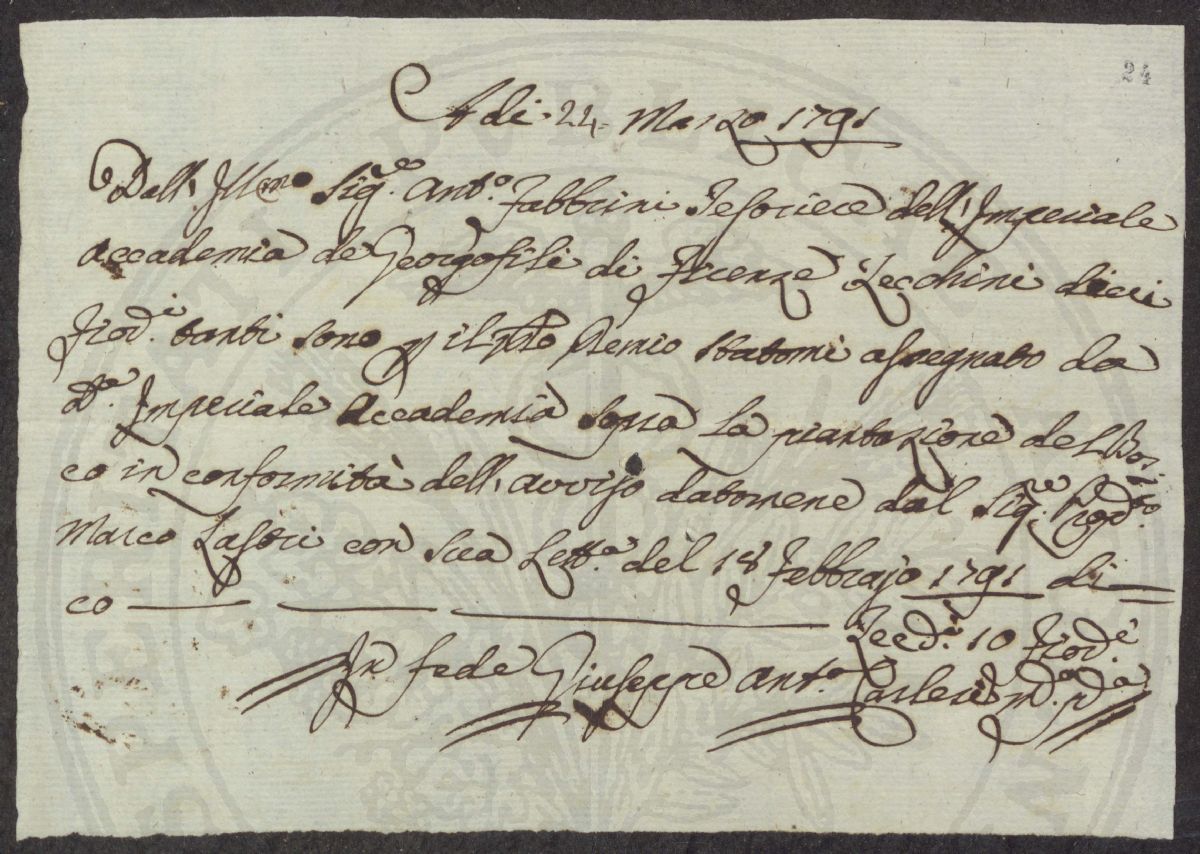 24
Adi 24 Marzo 1791
Dall' Illmo Sig.re Ant.o Fabbrini Tesoriere dell' Imperiale
Accademia de Georgofili di Firenze Zecchini dieci
Fiod.i tanti sono p il Premio statomi assegnato da
d.a Imperiale Accademia sopra la piantazione del Bos-
co in conformità dell' avviso datomene dal Sig.re
Marco Lastri con sua Lett.a del 18 Febbrajo 1791 di-
co Zecc.i 10 Fiod.i
In fede Giuseppe Ant.o m.o p.a